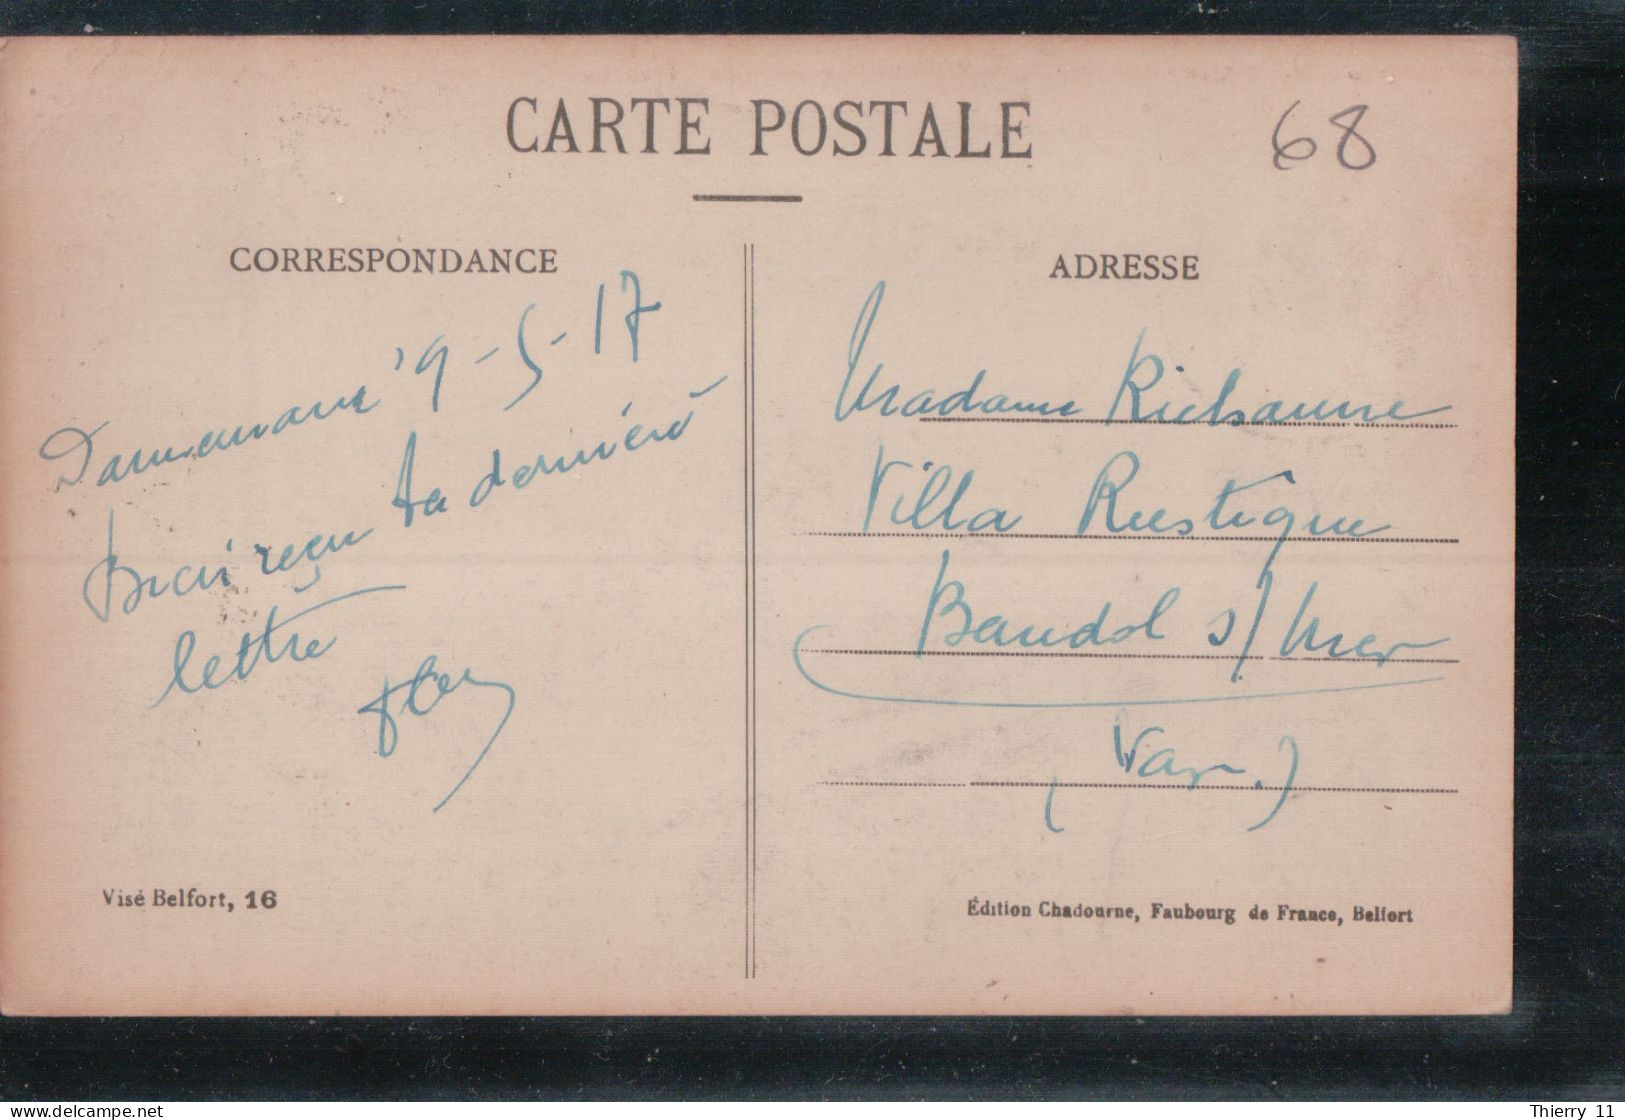 CARTE POSTALE
68
CORRESPONDANCE
9-5-17
Bien reçu ta dernière
lettre
ADRESSE
Madame Richaume
Villa Rustique
Bandol s/ mer
(Var.)
Visé Belfort, 16
Édition Chadourne, Faubourg de France, Belfort
delcampe.net
Thierry 11